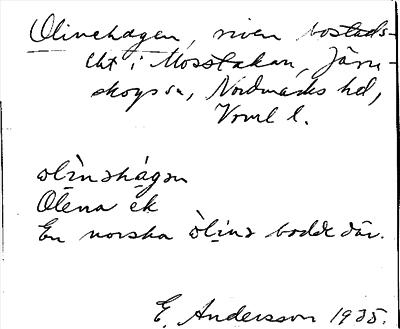 Olinehagen, riven bostads-
lht i Mosstakan, Järn-
skogs sn, Nordmarks hd,
Vrml l.
ωl̀inəhágən
Olena ek
En norska òlinə bodde där.
E. Andersson 1935.